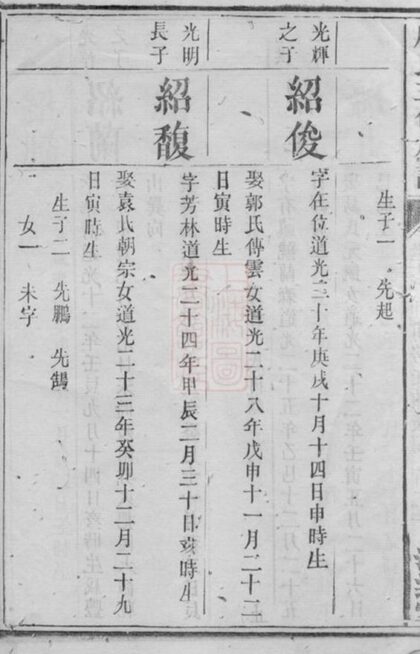 生子一 先起
光輝之子
紹俊
字在位道光三十年庚戌十月十四日申時生
娶郭氏傳雲女道光二十八年戊申十一月二十二
日寅時生
光明長子
紹馥
字芳林道光二十四年甲辰二月三十日亥時生
娶袁氏朝宗女道光二十三年癸卯十二月二十九
日寅時生
生子二 先鵬 先鵠
女一 未字